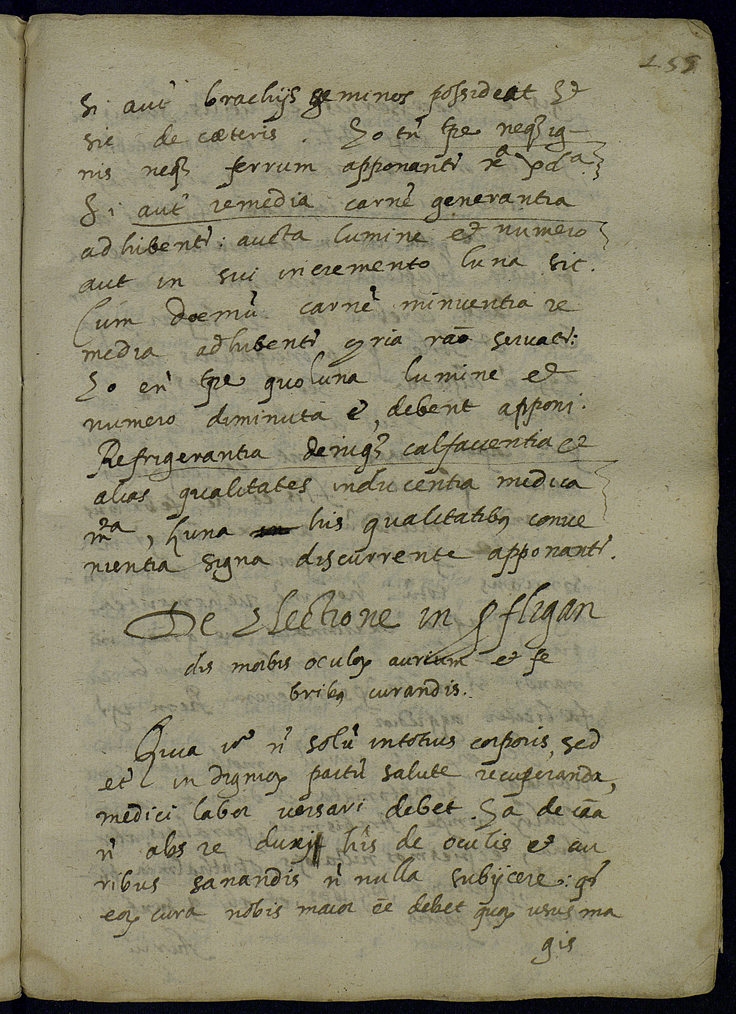 155
Si aut̄ brachijs geminos possideat Et
sic de cæteris. Eo tn̄ tpe neq3 ig-
nis neq3 ferrum apponantr̄
Si aut̄ remedia carnē generantia
adhibentr̄: aucta lumine et numero
aut in sui incremento luna sit.
Cum carnē minuentia re
media adhibentr̄ ria rāo seruatr̄:
Eo en̄ tpe quo luna lumine et
numero diminuta ē, debent apponi.
Refrigerantia deniq3 calfacientia et
alias qualitates inducentia medica
m̄ta, Luna his qualitatib9 conue
nientia signa discurrente apponantr̄.
De Electione in ꝓfligan
dis morbis oculoꝝ aurium et fe
brib9 curandis.
Quia vo n̄ solū in totius corporis, sed
et̄ in dignioꝝ partiū salute recuperanda,
medici labor versari debet. Ea de cāa
n̄ abs re duxi his de oculis et au
ribus sanandis n̄ nulla subijcere: qr̄
eoꝝ cura nobis maior ēe debet quoꝝ usus ma
gis